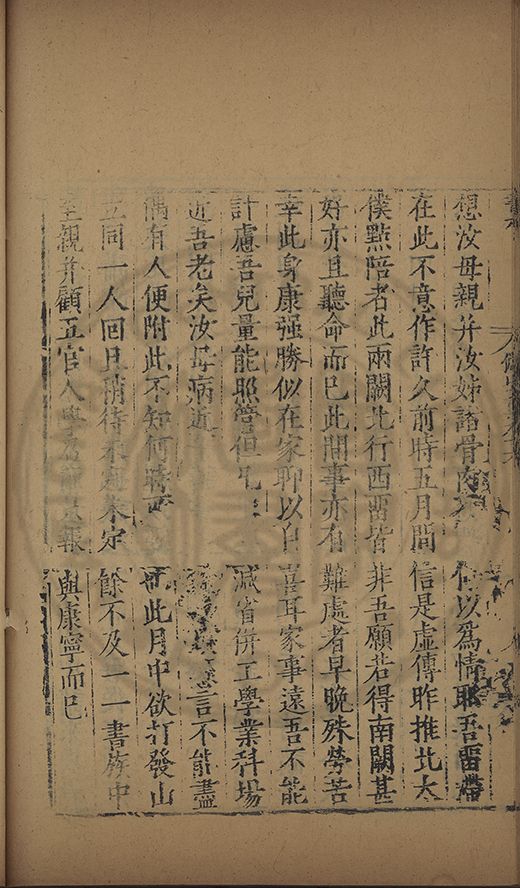 想汝母親并汝姊諸骨肉何以爲情耶吾畱滯
在此不意作許久前時五月間信是虛傳昨推北大
僕點陪者此兩闕北行西畱皆非吾願若得南闕甚
好亦且聽命而已此間事亦有難處者早晚殊勞苦
幸此身康强勝似在家聊以自喜耳家事遠吾不能
計慮吾兒量能照管但凡減省併工學業科場
近吾老矣汝母病近言不能盡
偶有人便附此不知何時此月中欲打發山
立同一人回且稍待定餘不及一一書族中
至親并顧五官人報與康寧而已